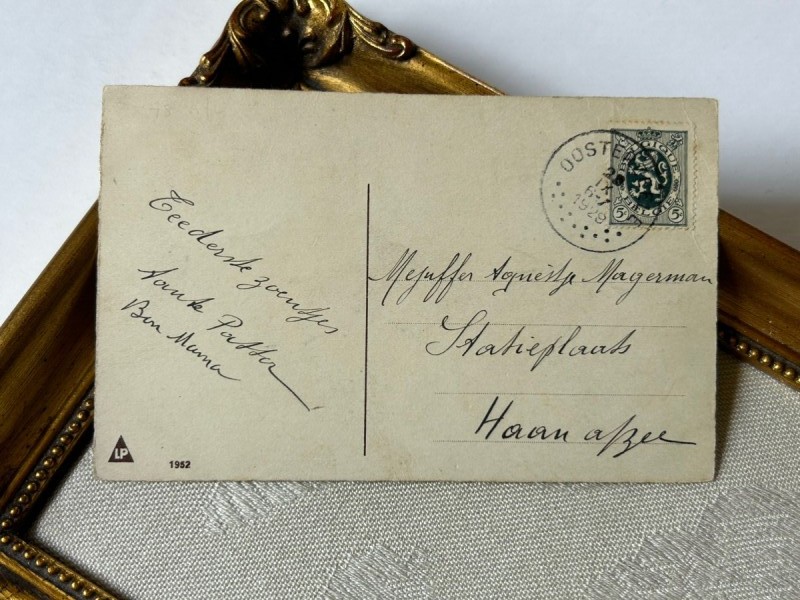 Teederste zoentjes
Tante
Bon Mama
LP
1952
OOSTE
28
IX
1929
BELGIQUE
BELGIE
5 5
Mejuffer Agnèstje Magerman
Statieplaats
Haan a/zee